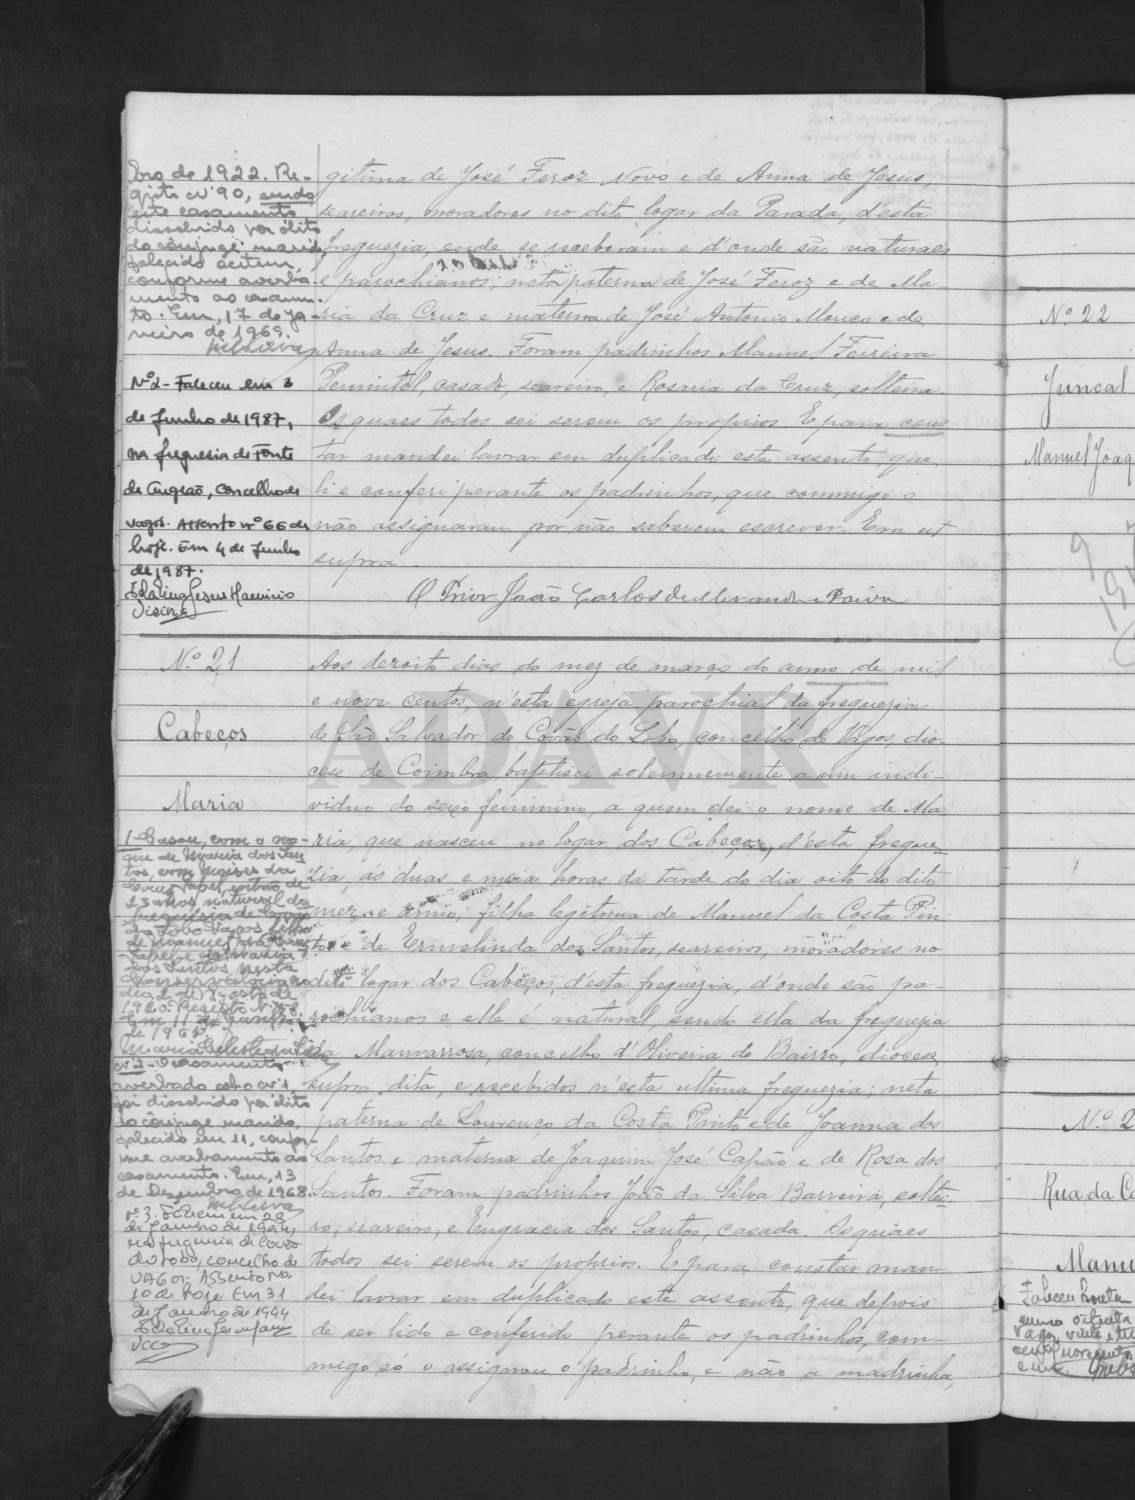 bro de 1922. Re-
gisto nº 90, sendo
este casamento
dissolvido por óbito
do cônjuge marido
falecido
conforme averba-
mento ao casamen-
to. Em, 17 de Ja-
neiro de 1969.
Nº 2 - Faleceu em 3
de Junho de 1987,
na freguesia de Fonte
de Angeão, concelho de
Vagos. Assento nº 66 de
hoje. Em 4 de Junho
de 1987.
gitima de José Feroz Novo e de Anna de Jesus,
seareiros, moradores no dito logar da Parada, d'esta
freguezia, onde se receberam e d'onde são naturaes
e parochianos; neta paterna de José Feroz e de Ma-
ria da Cruz e materna de José Antonio Mouco e de
Anna de Jesus. Foram padrinhos Manuel Ferreira
casado, seareiro, e Rosaria da Cruz, solteira.
Os quaes todos sei serem os proprios. E para cons
tar mandei lavrar em duplicado este assento, que,
li e conferi perante os padrinhos, que commigo o
não assignaram por não saberem escrever. Era ut
supra.
O Prior João Carlos de Miranda e Paiva
Nº 21
Cabeços
Maria
1 Casou, com o no-
me de Maria dos San
tos, com Moises da
Cruz Papel, então de
23 anos natural da
freguesia de Covão
do Lobo Vagos filho
de Manuel da Cruz
Papel e de Maria
dos Santos, nesta
Conservatória no
dia 2 de Agosto de
1920. Registo nº 78
Em, 11 de
de 196
Nº 2 - O casamento
averbado sob o nº 1,
foi dissolvido por óbito
do cônjuge marido,
falecido em 11, confor-
me averbamento ao
casamento. Em, 13
de Dezembro de 1968.
nº 3. Faleceu em 29
de Janeiro de 1994,
na freguesia de Covão
do Lobo, concelho de
Vagos. Assento nº
10 de hoje. Em 31
de Janeiro de 1994
Aos dezoito dias do mez de março do anno de mil
e nove centos, n'esta egreja parochial da freguezia
de São Salvador do Covão do Lobo, concelho de Vagos, dio-
cese de Coimbra, baptisei solemnemente a um indi-
viduo do sexo feminino, a quem dei o nome de Ma
ria, que nasceu no logar dos Cabeços, d'esta fregue-
zia, ás duas e meia horas da tarde do dia oito do dito
mez e anno, filha legitima de Manuel da Costa Pin
to e de Ermelinda dos Santos, seareiros, moradores no
dito logar dos Cabeços, d'esta freguezia, d'onde são pa-
rochianos e elle é natural, sendo ella da freguezia
da Mamarrosa, concelho d'Oliveira do Bairro, diocese,
supra dita, e recebidos n'esta ultima freguezia; neta
paterna de Lourenço da Costa Pinto e de Joanna dos
Santos e materna de Joaquim José Capão e de Rosa dos
Santos. Foram padrinhos João da Silva Barreira, soltei-
ro, seareiro, e Engracia dos Santos, casada. Os quaes
todos sei serem os proprios. E para constar man
dei lavrar em duplicado este assento, que depois
de ser lido e conferido perante os padrinhos, com-
migo só o assignou o padrinho, e não a madrinha,
ADAVR
Nº 22
Juncal
Manuel Joaq
Nº 2
Rua da Ca
Manu
Faleceu